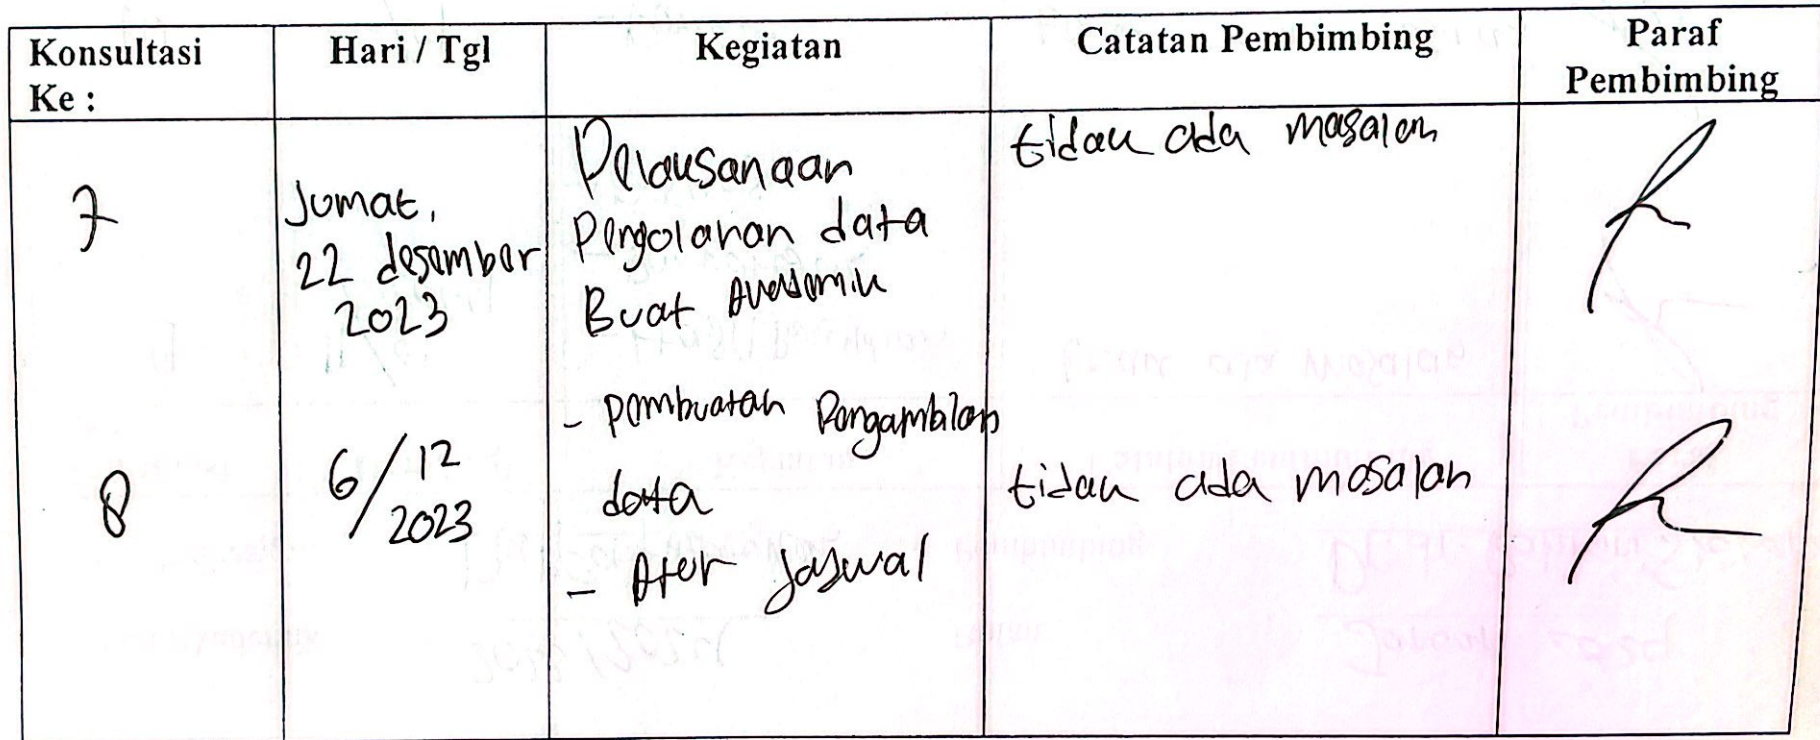 Konsultasi Ke :
Hari / Tgl
Kegiatan
Catatan Pembimbing
Paraf Pembimbing
7
Jumat,
22 desember
2023
Pelaksanaan
Pengolahan data
Buat Akademik
tidak ada masalah
8
6/12
2023
- pembuatan Pengambilan
data
- Atur Jadwal
tidak ada masalah